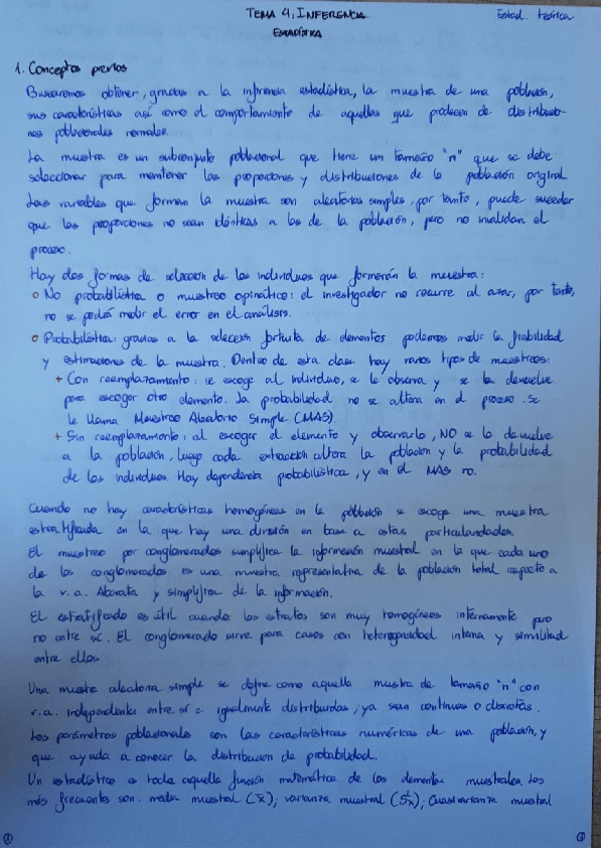 TEMA 4. INFERENCIA
ESTADÍSTICA
Estad. teórica
1. Conceptos previos
Buscaremos obtener, gracias a la inferencia estadística, la muestra de una población,
sus características así como el comportamiento de aquellas que proceden de distribucio-
nes poblacionales normales.
La muestra es un subconjunto poblacional que tiene un tamaño "n" que se debe
seleccionar para mantener las proporciones y distribuciones de la población original.
Las variables que forman la muestra son aleatorias simples, por tanto, puede suceder
que las proporciones no sean idénticas a las de la población, pero no invalidan el
proceso.
Hay dos formas de selección de los individuos que formarán la muestra:
○ No probabilística o muestreo opinático: el investigador no recurre al azar, por tanto,
no se podrá medir el error en el análisis.
○ Probabilística gracias a la selección fortuita de elementos podemos medir la fiabilidad
y estimaciones de la muestra. Dentro de esta clase hay varios tipos de muestreos:
+ Con reemplazamiento: se escoge al individuo, se le observa y se le devuelve
para escoger otro elemento. La probabilidad no se altera en el proceso. Se
le llama Muestreo Aleatorio Simple (MAS).
+ Sin reemplazamiento: al escoger el elemento y observarlo, NO se lo devuelve
a la población, luego cada extracción altera la población y la probabilidad
de los individuos. Hay dependencia probabilística, y en el MAS no.
Cuando no hay características homogéneas en la población se escoge una muestra
estratificada en la que hay una división en base a estas particularidades.
El muestreo por conglomerados simplifica la información muestral en la que cada uno
de los conglomerados es una muestra representativa de la población total respecto a
la v.a. Abarata y simplifica de la información.
El estratificado es útil cuando los estratos son muy homogéneos internamente pero
no entre sí. El conglomerado sirve para casos con heterogeneidad interna y similitud
entre ellos.
Una muestra aleatoria simple se define como aquella muestra de tamaño "n" con
v.a. independientes entre sí e igualmente distribuidas, ya sean continuas o discretas.
Los parámetros poblacionales son las características numéricas de una población, y
que ayuda a conocer la distribución de probabilidad.
Un estadístico es toda aquella función matemática de los elementos muestrales. Los
más frecuentes son: media muestral (x̄); varianza muestral (S²x); Cuasivarianza muestral